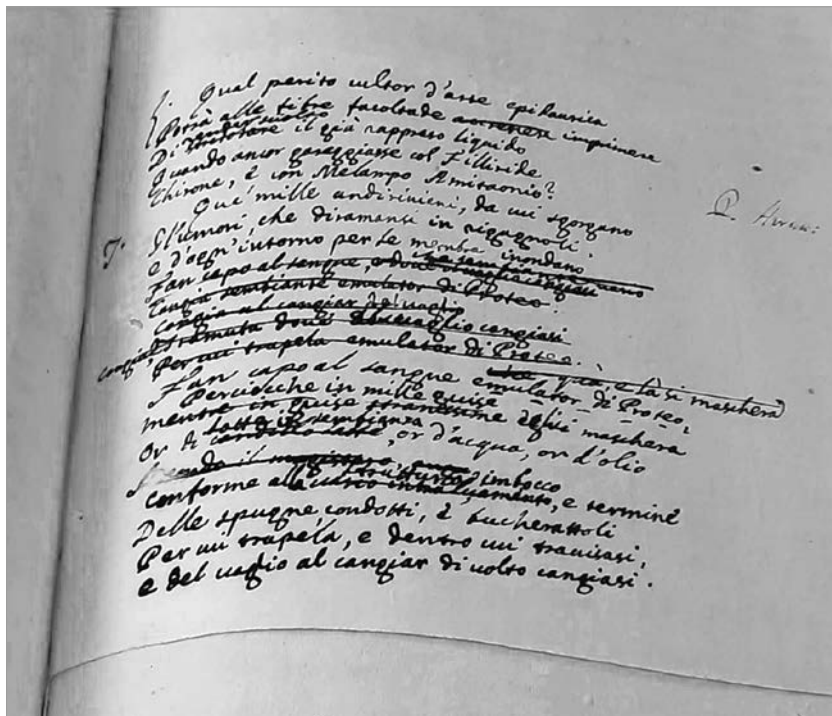 Qual perito cultor d'arte epidaurica
Potrà alle fibre facoltade accrescere imprimere
Di render sciolto
il già rappreso liquido
Quando ancor gareggiasse col Filliride
Chirone, è con Melampo Amitaonio?
Que' mille andirivieni, da cui sgorgano
7. Gl'umori, che diramansi in rigagnoli
e d'ogn'intorno per le membra inondano
Fan capo al sangue, e
Cangia sembiante emulator di Proteo.
cangia al cangiar del vaglio
cangia, tramuta
cangiasi
Per cui trapela emulator di Proteo.
qua, e là si maschera
Fan capo al sangue emulator di Proteo,
Perciocche in mille guise
mentre in guise stranissime
maschera
Or di
sotto
sembianza
, or d'acqua, or d'olio
il
imbocco
struttura
conforme alla
, e termine
Delle spugne, condotti, è bucherattoli
Per cui trapela, e dentro cui travisasi,
e del vaglio al cangiar di volto cangiasi.
P.